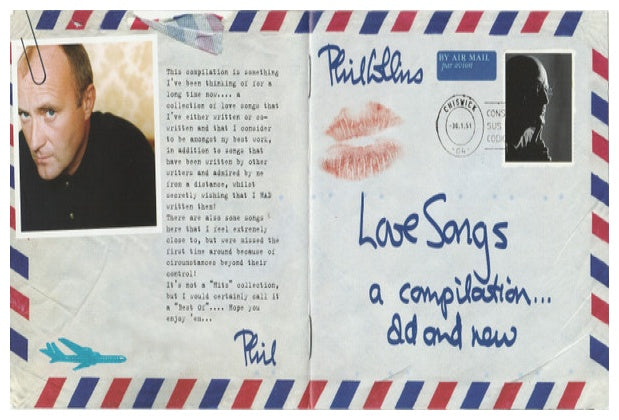 This compilation is something
I've been thinking of for a
long time now.... a
collection of love songs that
I've either written or co-
written and that I consider
to be amongst my best work,
in addition to songs that
have been written by other
writers and admired by me
from a distance, whilst
secretly wishing that I HAD
written them!
There are also some songs
here that I feel extremely
close to, but were missed the
first time around because of
circumstances beyond their
control!
It's not a "Hits" collection,
but I would certainly call it
a "Best Of".... Hope you
enjoy 'em...
Phil
Phil Collins
BY AIR MAIL
par avion
CHISWICK
-30.1.51
CONS
SUS
COOK
Love Songs
a compilation...
old and new